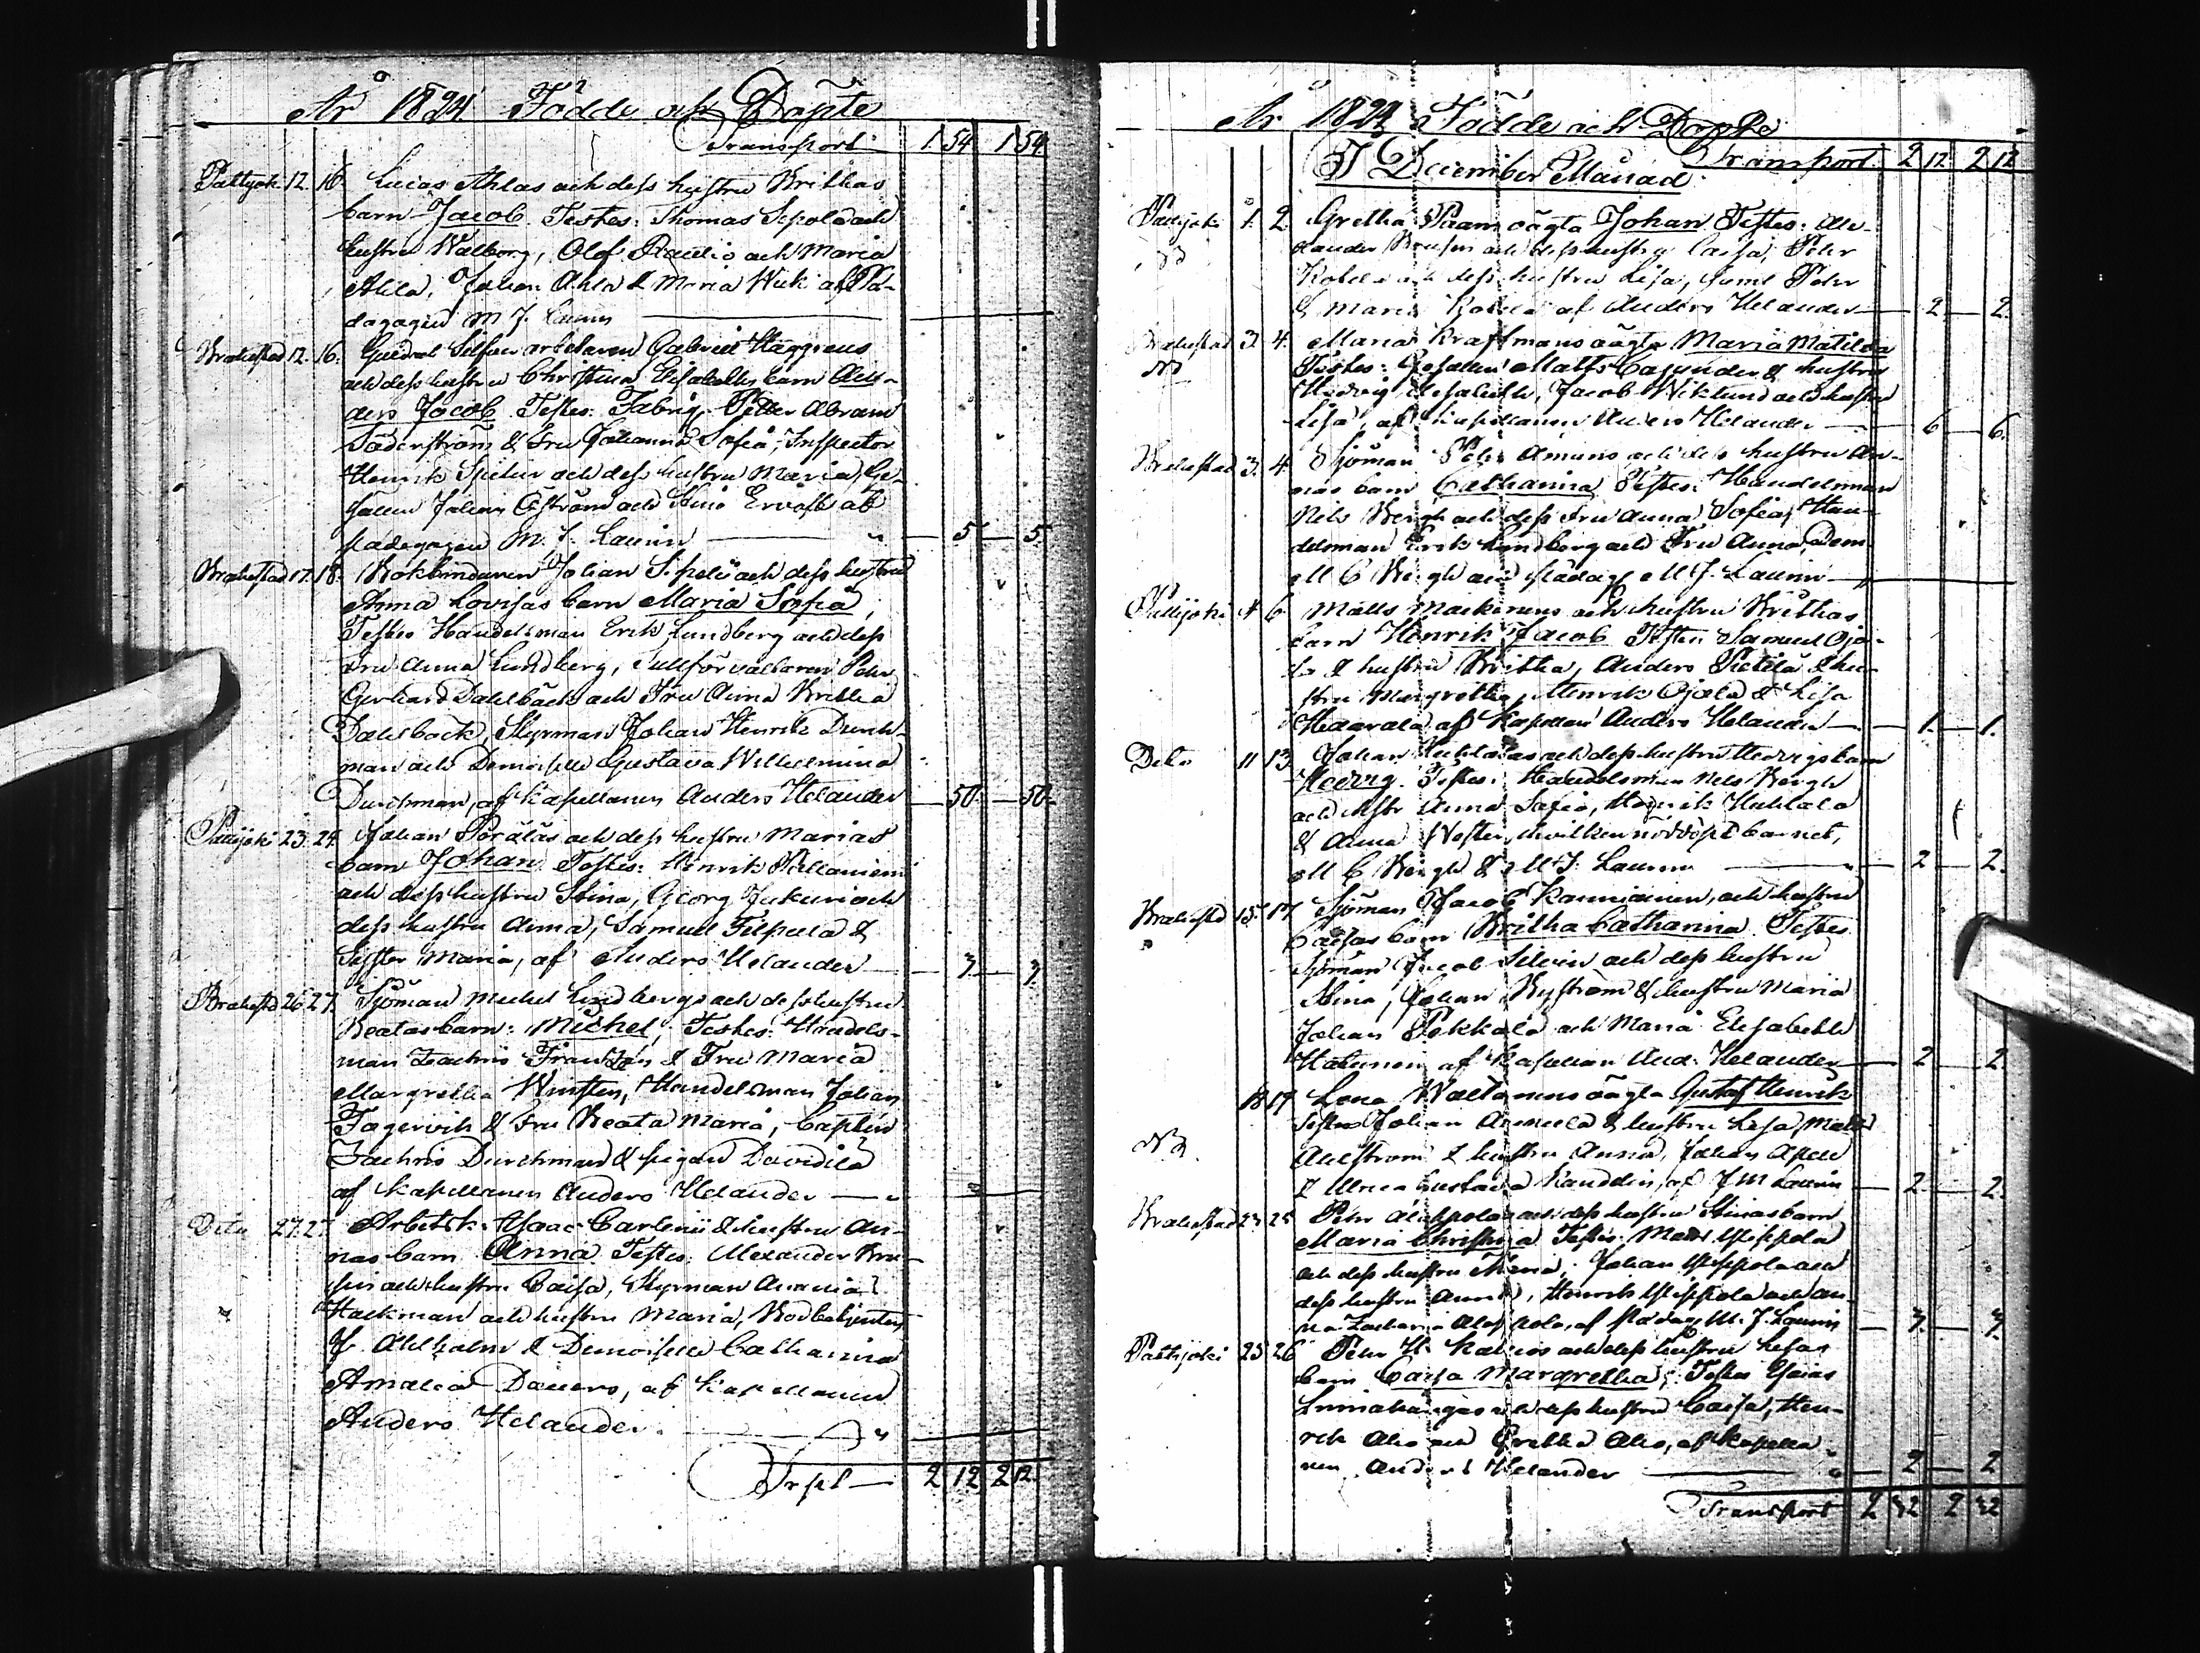 År 1824 Födde och Döpte
Transport 1 54 1 54
Pattijoki 12. 16. Lucas Ahlas och dess hustru Brithas
barn Jacob. Testes: Thomas Sipola och
hustru Walborg, Olof Raudio och Maria
Ahla, Johan Ahla & Maria Wiik af Pä-
dagogen M J. Laurin
Brahestad 12. 16. Guld och Silfver arbetaren Gabriel Häggrens
och dess hustru Christina Elisabeths barn An-
ders Jacob Testes: Fabriq. Petter Abram
Söderström & Fru Johanna Sofia, Inspector
Henrik Spelur och dess hustru Maria, Ge-
sällen Johan Öström och Stina Ervast af
Pädagogen M. J. Laurin — 5 — 5.
Brahestad 17. 18. Bokbindaren Johan Sipelii och dess hustru
Anna Lovisas barn Maria Sofia,
Testes Handelsman Erik Lundberg och dess
Fru Anna Lundberg, Tullförvaltaren Pehr
Gerhard Dahlbäck och Fru Anna Britha
Dahlbäck, Styrman Johan Henrik Durch-
man och Demoiselle Gustava Wilhelmina
Durchman, af Kapellanen Anders Helander — 50 — 50.
Pattijoki 23. 24. Johan Pöräläs och dess hustru Marias
barn Johan. Testes: Henrik Pallaniemi
och dess hustru Stina, Georg Jukuri och
dess hustru Anna, Samuel Filpula &
Syster Maria, af Anders Helander — 3. — 3.
Brahestd 26 27. Sjöman Michel Lindbergs och dess hustru
Beatas barn: Michel, Testes: Handels-
man Zachris Franzén & Fru Maria
Margretha Winsten, Handelsman Johan
Fagervik & Fru Beata Maria, Captein
Zachris Durchman & pigan Davidila
af Kapellanen Anders Helander
Dito 27. 27. Arbetsk. Isaac Carlenii & hustru An-
nas barn Anna. Testes: Alexander Bru-
sin och hustru Caisa, Styrman Anania
Hackman och hustru Maria, Bodbetjenten
J. Ahlholm & Demoiselle Catharina
Amalia Daners, af Kapellanen
Anders Helander.
Trspt — 2 12 2 12.
År 1824 Födde och Döpte
Transport 2 12. 2 12
I December Månad
Pattijoki 1. 2. Gretha Paam oägta Johan Testes: Ale-
xander Brusin och dess hustru Caisa, Pehr
Kobela och dess hustru Lisa, samt Pehr
& Maria Kobela af Anders Helander — 2. — 2.
Brahestad 3. 4. Maria Kraftmans oägta Maria Matilda
Testes: Gesällen Matts Cajander & hustru
Hedvig Elisabeth, Jacob Wiklund och hustru
Lisa, af Kapellanen Anders Helander — 6 — 6.
Brahestad 3. 4. Sjöman Pehr Amuns och dess hustru An-
nas barn Catharina Testes: Handelsman
Nils Bergh och dess Fru Anna Sofia, Han-
delsman Erik Lundberg och Fru Anna, Dem.
M C Bergh och Pädag. M J. Laurin
Pattijoki 4 6 Matts Maekinens och hustru Brithas
barn Henrik Jacob Testes: Samuel Oja-
la & hustru Britha, Anders Pietilä & hu-
stru Margretha, Henrik Ojala & Lisa
Haarala af Kapellan Anders Helander — 1. — 1.
Dito 11 13. Johan Huhtalas och dess hustru Hedvigs barn
Hedvig. Testes: Handelsman Nils Bergh
och hustr Anna Sofia, Henrik Huhtala
& Anna Wester, hvilken nöddöpt barnet,
M C Bergh & M J. Laurin — 2 — 2.
Brahestd 15. 17. Sjöman Jacob Kauniainen, och hustru
Caisas barn Britha Catharina. Testes
Sjöman Jacob Silvin och dess hustru
Stina, Johan Nyström & hustru Maria
Johan Pekkala och Maria Elisabeth
Hakunen af Kapellan And. Helander — 2 — 2.
18 19. Lena Waltarens oägta Gustaf Henrik
Testes Johan Annala & hustru Lisa, Matts
Ahlström & hustru Anna, Johan Apell
& Ulrica Gustava Kandelin, af J M Laurin — 2. — 2.
Brahestad 23 25 Pehr Alappolas och dess hustru Stinas barn
Maria Christina Testes: Matts Ylippola
och dess hustru Maria, Johan Ylippola och
dess hustru Anna, Henrik Ylippola och An-
na Zacharia Alappola, af Pädag. M. J. Laurin — 3. — 3.
Pattijoki 25 26 Pehr H. Kalios och dess hustru Lisas
barn Caisa Margretha, Testes Esaias
Linnakangas och dess hustru Caisa, Hen-
rik Aho och Gretha Aho, af Kapella-
nen Anders Helander — 2 — 2
Transport 2 32 2 32